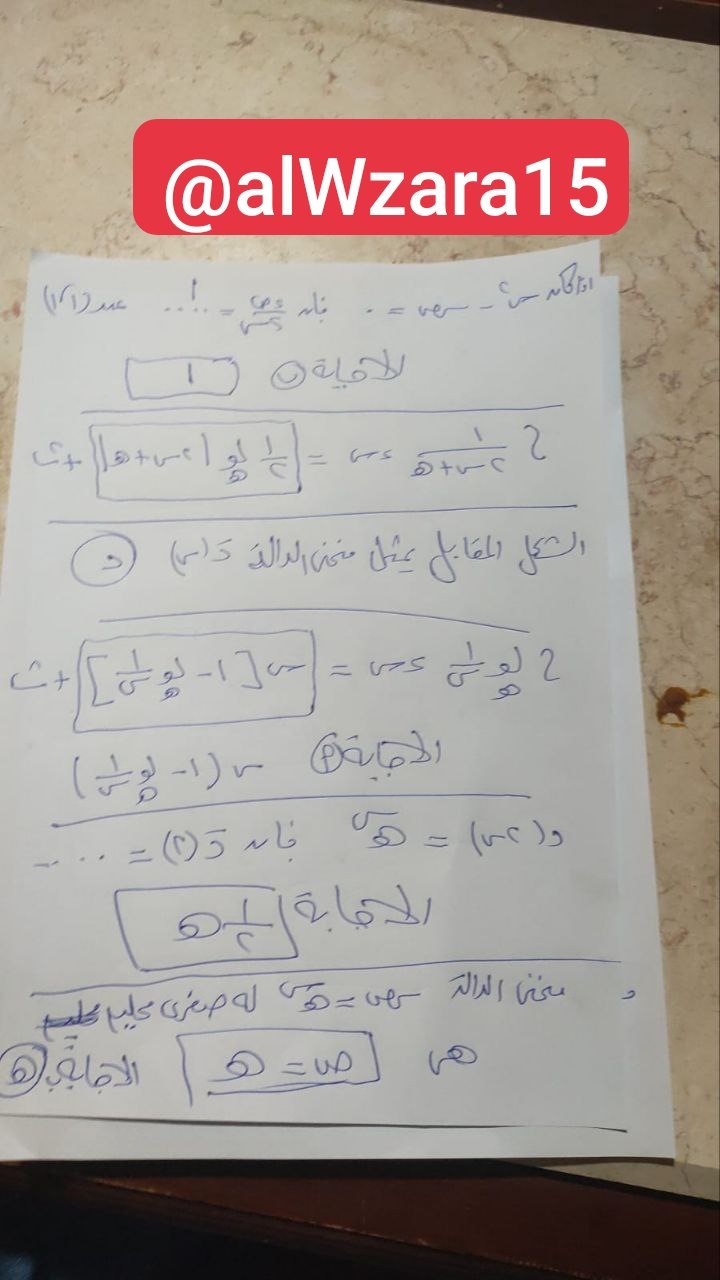 @alWzara15
اذا كانت س² - س ص = ٠ فإن دص/دس = .... عند (١،١)
الإجابة ١
∫ ١/(٢س+هـ) دس = ١/٢ لو هـ |٢س+هـ| + ث
الشكل المقابل يمثل منحنى الدالة دَ(س)
∫ لو هـ ١/س دس = س[١ - لو هـ ١/س] + ث
الإجابة س(١ - لو هـ ١/س)
د(٢س) = هـ^س فإن دَ(٢) = ....
الإجابة ١/٢ هـ
منحنى الدالة له صغرى محلية
هي ص = هـ الإجابة